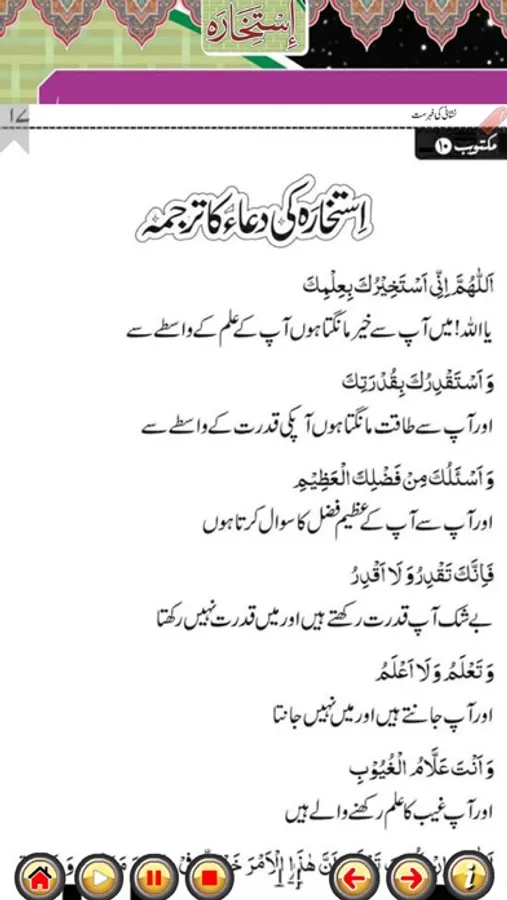 اِسْتِخَارَہ
نشانی کی فہرست
١٧
مکتوب ١٠
اِستخارَہ کی دعاءُ کا ترجمہ
اَللّٰهُمَّ اِنِّی اَسْتَخِیْرُكَ بِعِلْمِكَ
یا اللہ! میں آپ سے خیر مانگتا ہوں آپ کے علم کے واسطے سے
وَ اَسْتَقْدِرُكَ بِقُدْرَتِكَ
اور آپ سے طاقت مانگتا ہوں آپکی قدرت کے واسطے سے
وَ اَسْئَلُكَ مِنْ فَضْلِكَ الْعَظِیْمِ
اور آپ سے آپ کے عظیم فضل کا سوال کرتا ہوں
فَاِنَّكَ تَقْدِرُ وَ لَا اَقْدِرُ
بے شک آپ قدرت رکھتے ہیں اور میں قدرت نہیں رکھتا
وَ تَعْلَمُ وَ لَا اَعْلَمُ
اور آپ جانتے ہیں اور میں نہیں جانتا
وَ اَنْتَ عَلَّامُ الْغُیُوْبِ
اور آپ غیب کا علم رکھنے والے ہیں
اَنَّ هٰذَا الْاَمْرَ
14
i